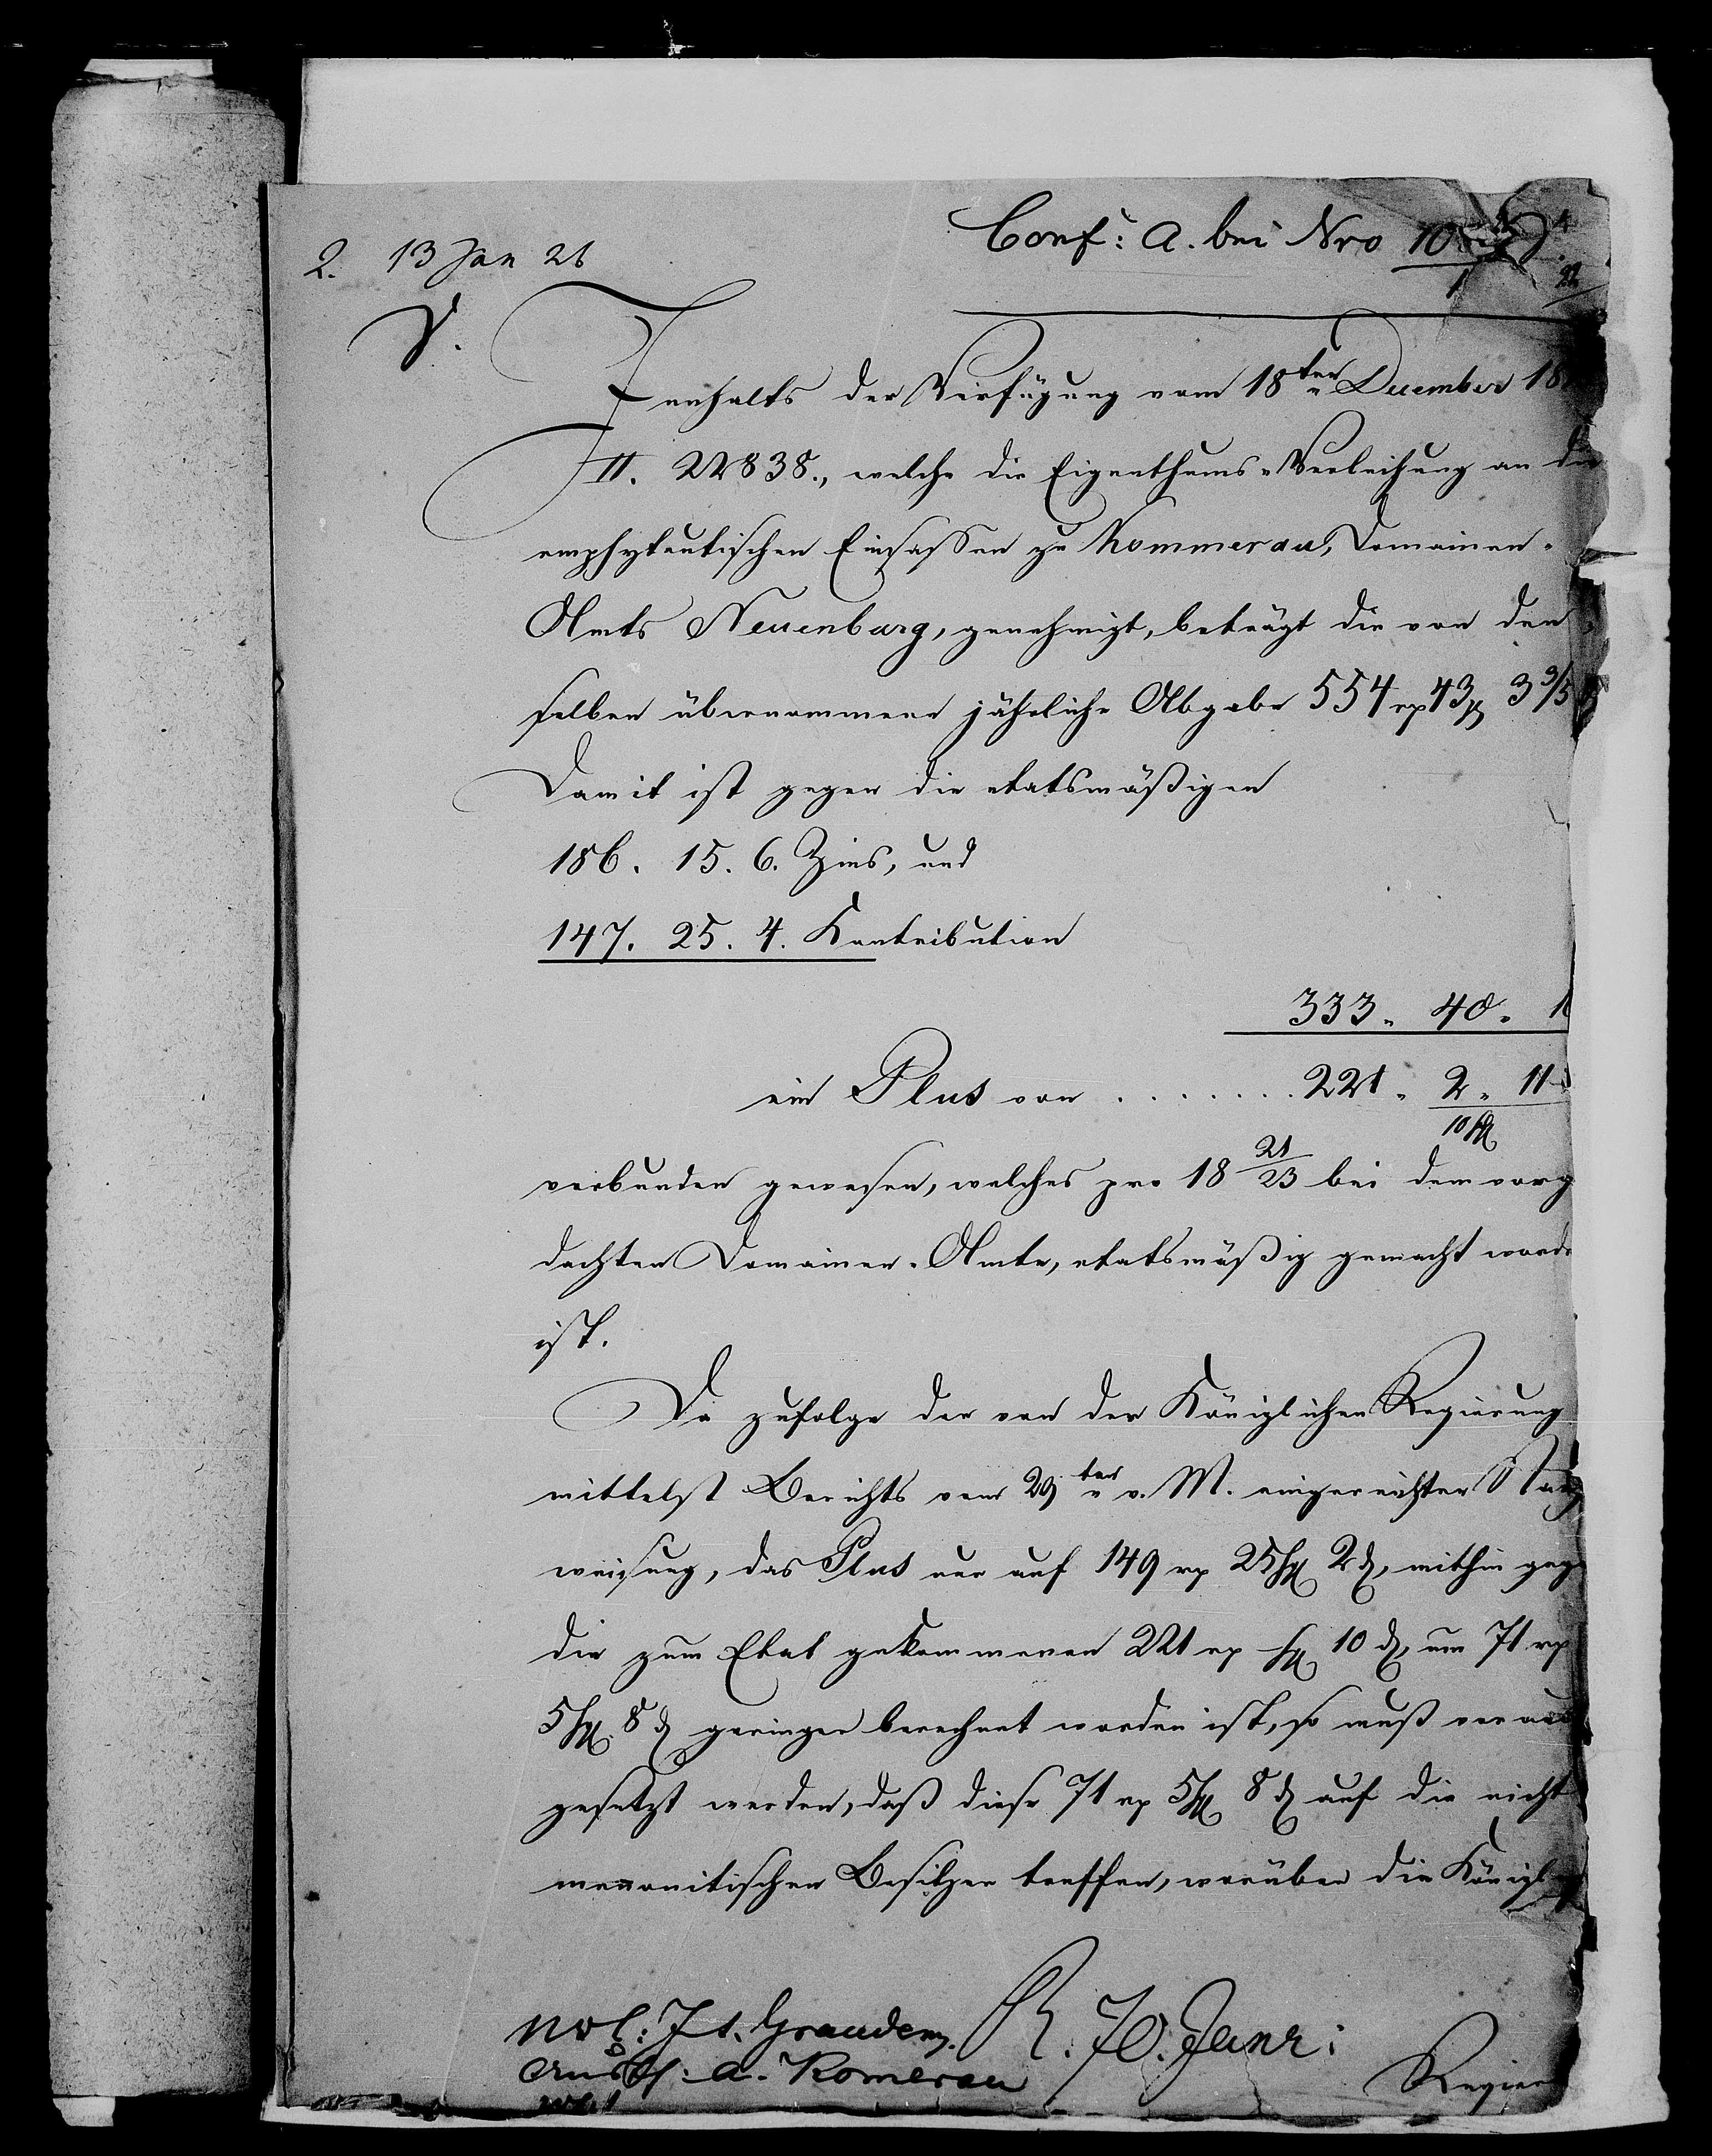 2. 13 Jan 26
Conf: A. bei Nro 10
V.
Innhalts der Verfügung vom 18ten December 18
II. 22838., welche die Eigenthums-Verleihung an die
emphyteutischen Einsaßen zu Kommerau, Domainen-
Amts Neuenburg, genehmigt, beträgt die von den
selben übernommene jährliche Abgabe 554 rp 43 g 3 3/5
Damit ist gegen die etatsmäßigen
186. 15. 6. Zins, und
147. 25. 4. Kontribution
333. 40. 1
ein Plus von ........ 221. 2. 11
verbunden gewesen, welches pro 18 21/23 bei dem vorg
dachten Domainen-Amte, etatsmäßig gemacht worde
ist.
Da zufolge der von der Königlichen Regierung
mittelst Berichts vom 29ten v. M. eingereichten Nach
weisung, das Plus nur auf 149 rp 25 sg 2 d, mithin geg
die zum Etat gekommenen 221 rp - sg 10 d, um 71 rp
5 sg 8 d geringer berechnet worden ist, so muß voraus
gesetzt werden, daß diese 71 rp 5 sg 8 d auf die nicht
mennonitischen Besitzer treffen, worüber die Königl
R. 70. Janr:
Graudenz
a. Komerau
Regier